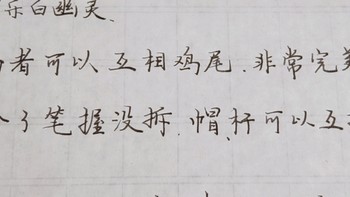 乐白幽灵.
者可以互相鸡尾.非常完美
个了笔握没拆.帽、杆可以互